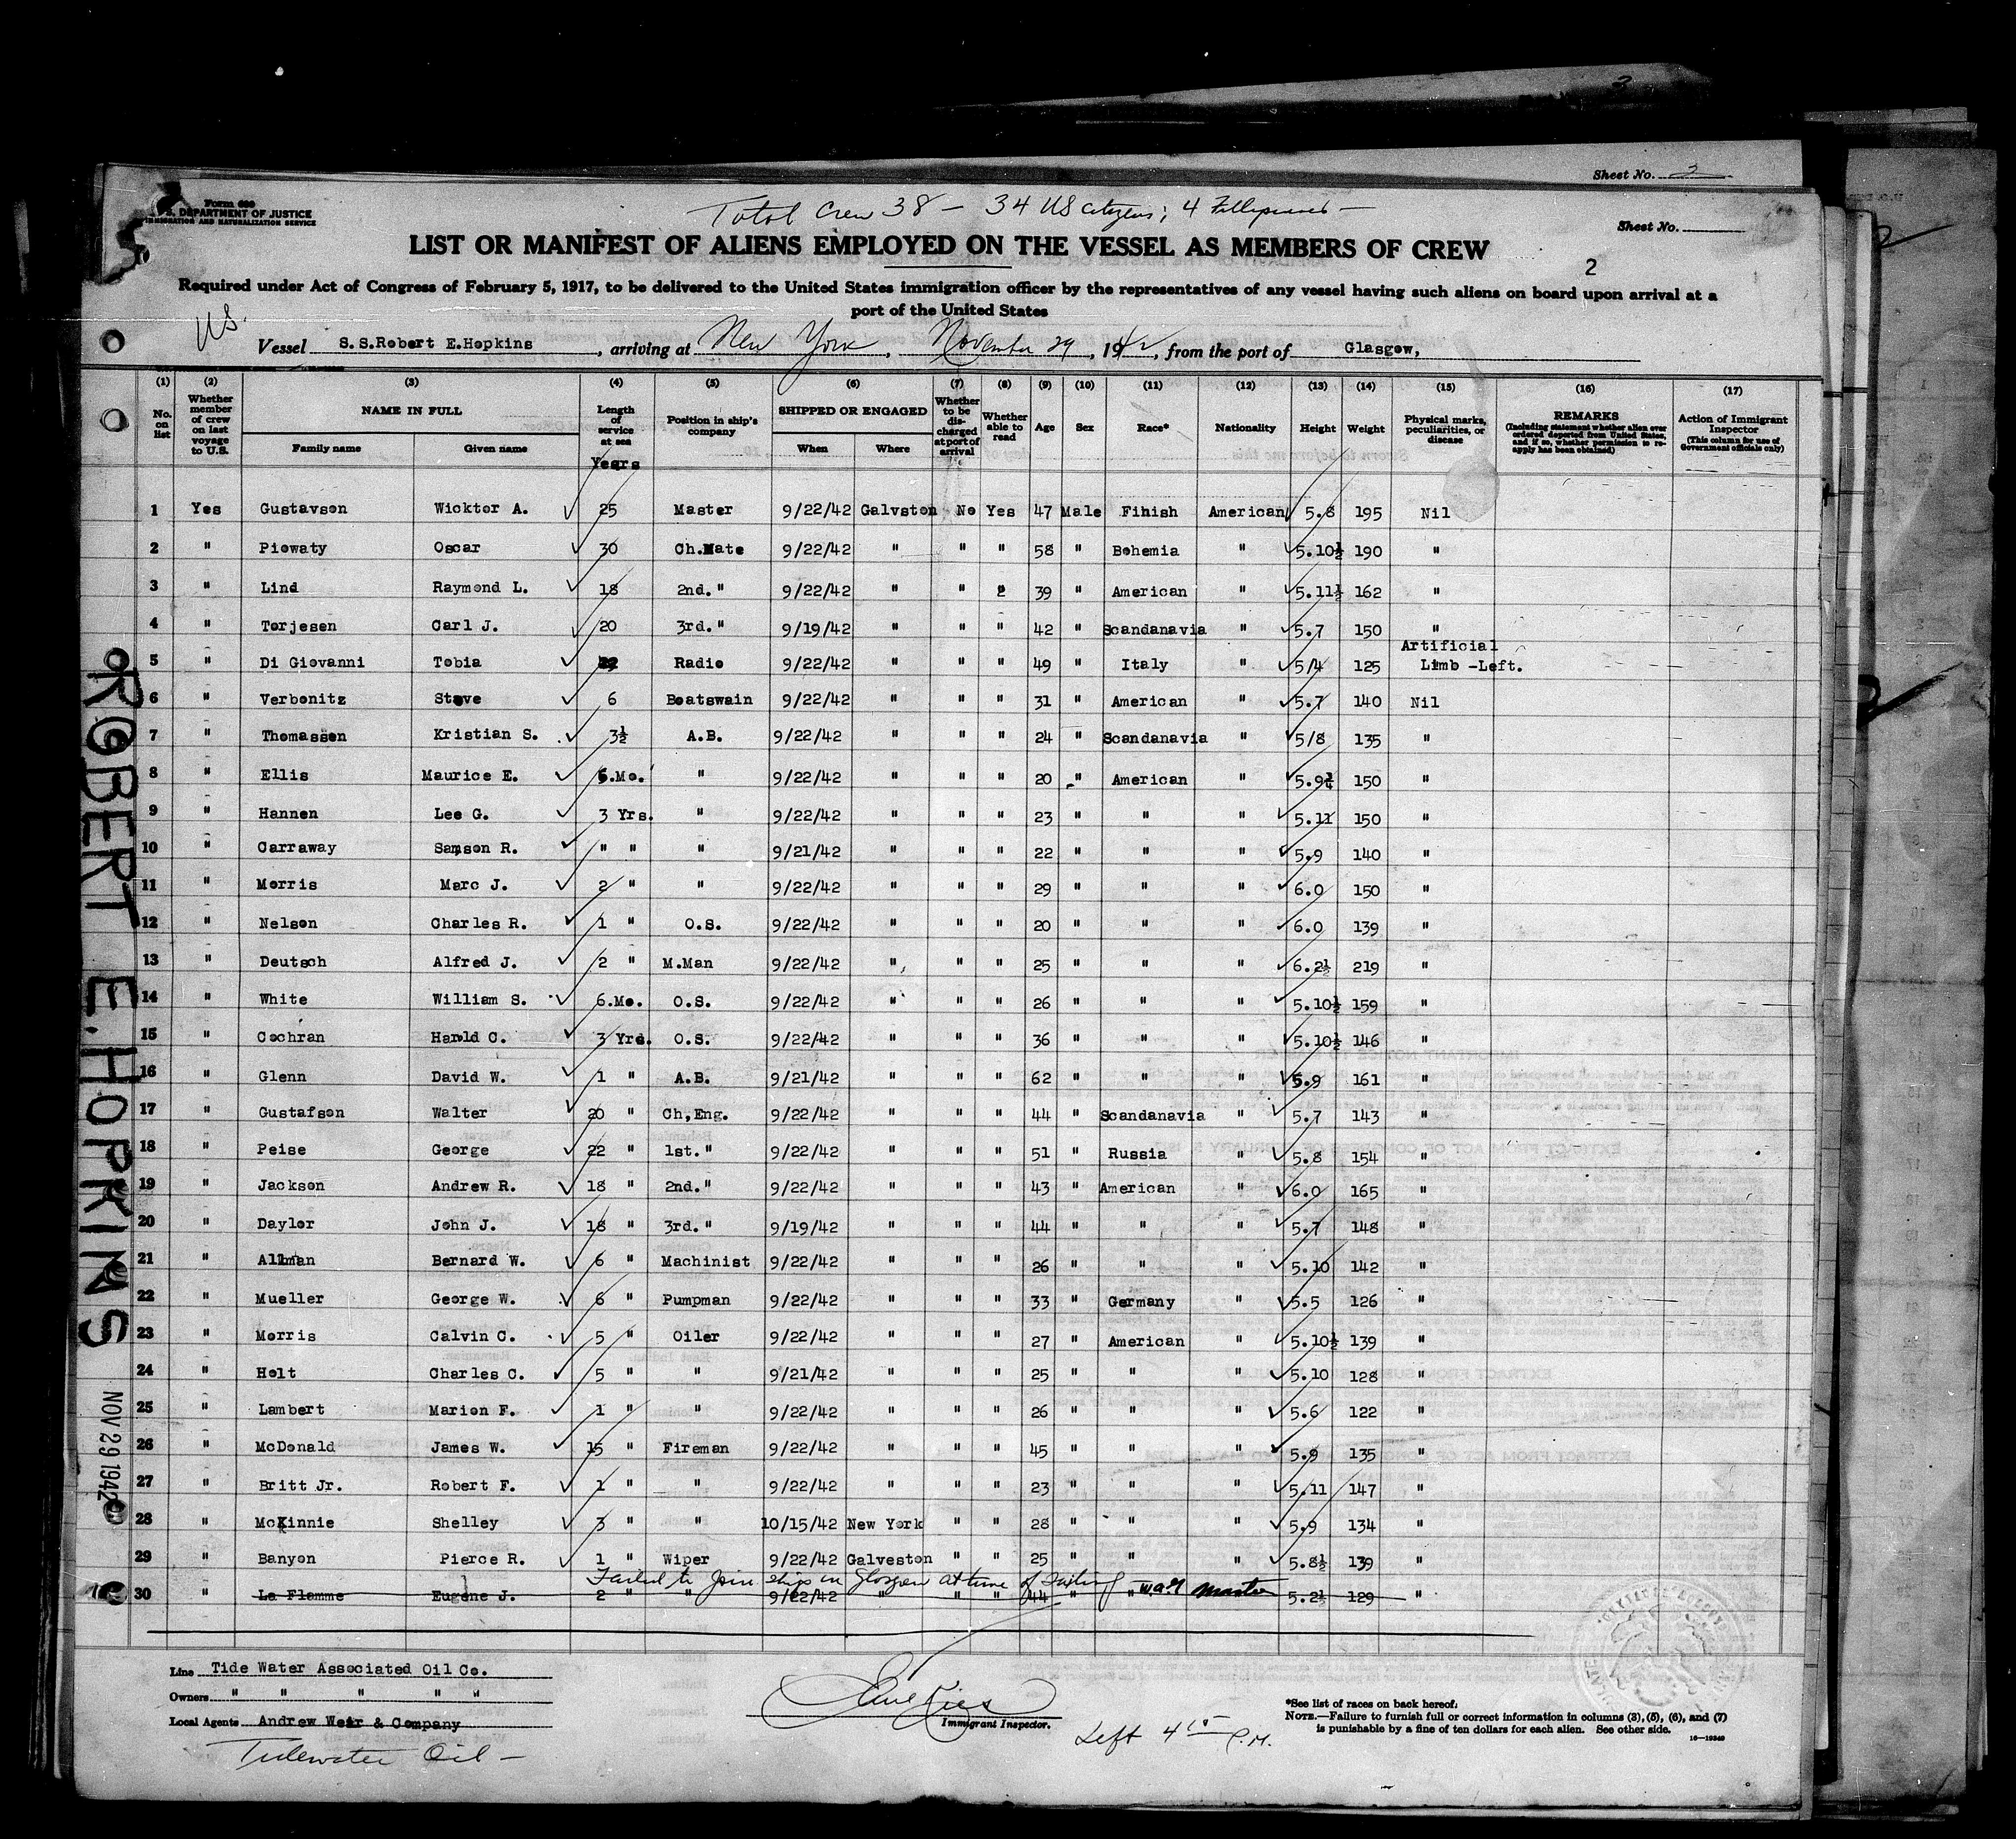 Sheet No. 3
Form 680
U. S. DEPARTMENT OF JUSTICE
IMMIGRATION AND NATURALIZATION SERVICE
Total Crew 38 - 34 US Citizens; 4 -
Sheet No.
LIST OR MANIFEST OF ALIENS EMPLOYED ON THE VESSEL AS MEMBERS OF CREW
2
Required under Act of Congress of February 5, 1917, to be delivered to the United States immigration officer by the representatives of any vessel having such aliens on board upon arrival at a
port of the United States
US.
Vessel S.S.Robert E.Hopkins, arriving at New York, November 29, 1942, from the port of Glasgow,
(1) (2) (3) (4) (5) (6) (7) (8) (9) (10) (11) (12) (13) (14) (15) (16) (17)
No. on list Whether member of crew on last voyage to U.S. NAME IN FULL Family name Given name Length of service at sea Years Position in ship's company SHIPPED OR ENGAGED When Where Whether to be discharged at port of arrival Whether able to read Age Sex Race* Nationality Height Weight Physical marks, peculiarities, or disease REMARKS (Including statement whether alien ever ordered deported from United States, and if so, whether permission to reapply has been obtained) Action of Immigrant Inspector (This column for use of Government officials only)
1 Yes Gustavson Wicktor A. 25 Master 9/22/42 Galvston No Yes 47 Male Finish American 5.8 195 Nil
2 " Piowaty Oscar 30 Ch.Mate 9/22/42 " " " 58 " Bohemia " 5.10½ 190 "
3 " Lind Raymond L. 18 2nd." 9/22/42 " " 2 39 " American " 5.11½ 162 "
4 " Torjesen Carl J. 20 3rd." 9/19/42 " " " 42 " Scandanavia " 5.7 150 "
5 " Di Giovanni Tobia Radio 9/22/42 " " " 49 " Italy " 5/4 125 Artificial Limb -Left.
6 " Verbonitz Steve 6 Boatswain 9/22/42 " " " 31 " American " 5.7 140 Nil
7 " Thomassen Kristian S. 3½ A.B. 9/22/42 " " " 24 " Scandanavia " 5/8 135 "
8 " Ellis Maurice E. 6.Mo. " 9/22/42 " " " 20 " American " 5.9¼ 150 "
9 " Hannen Lee G. 3 Yrs. " 9/22/42 " " " 23 " " " 5.11 150 "
10 " Carraway Samson R. " " " 9/21/42 " " " 22 " " " 5.9 140 "
11 " Morris Marc J. 2 " " 9/22/42 " " " 29 " " " 6.0 150 "
12 " Nelson Charles R. 1 " O.S. 9/22/42 " " " 20 " " " 6.0 139 "
13 " Deutsch Alfred J. 2 " M.Man 9/22/42 " " " 25 " " " 6.2½ 219 "
14 " White William S. 6.Mo. O.S. 9/22/42 " " " 26 " " " 5.10½ 159 "
15 " Cochran Harold C. 3 Yrs. O.S. 9/22/42 " " " 36 " " " 5.10½ 146 "
16 " Glenn David W. 1 " A.B. 9/21/42 " " " 62 " " " 5.9 161 "
17 " Gustafson Walter 20 " Ch,Eng. 9/22/42 " " " 44 " Scandanavia " 5.7 143 "
18 " Peise George 22 " 1st." 9/22/42 " " " 51 " Russia " 5.8 154 "
19 " Jackson Andrew R. 18 " 2nd." 9/22/42 " " " 43 " American " 6.0 165 "
20 " Daylor John J. 18 " 3rd." 9/19/42 " " " 44 " " " 5.7 148 "
21 " Allman Bernard W. 6 " Machinist 9/22/42 " " " 26 " " " 5.10 142 "
22 " Mueller George W. 6 " Pumpman 9/22/42 " " " 33 " Germany " 5.5 126 "
23 " Morris Calvin C. 5 " Oiler 9/22/42 " " " 27 " American " 5.10½ 139 "
24 " Holt Charles C. 5 " " 9/21/42 " " " 25 " " " 5.10 128 "
25 " Lambert Marion F. 1 " " 9/22/42 " " " 26 " " " 5.6 122 "
26 " McDonald James W. 15 " Fireman 9/22/42 " " " 45 " " " 5.9 135 "
27 " Britt Jr. Robert F. 1 " " 9/22/42 " " " 23 " " " 5.11 147 "
28 " McKinnie Shelley 3 " " 10/15/42 New York " " 28 " " " 5.9 134 "
29 " Banyon Pierce R. 1 " Wiper 9/22/42 Galveston " " 25 " " " 5.8½ 139 "
Failed to join ship in Glasgow at time of Sailing W.A.G Master
30 " La Flamme Eugene J. 2 " " 9/22/42 " " " 44 " " 5.2½ 129 "
ROBERT E. HOPKINS
NOV 29 1942
Line Tide Water Associated Oil Co.
Owners " " " " "
Local Agents Andrew Weir & Company
Tidewater Oil -
Immigrant Inspector.
Left 4 15 P.M.
*See list of races on back hereof.
NOTE.—Failure to furnish full or correct information in columns (3), (5), (6), and (7)
is punishable by a fine of ten dollars for each alien. See other side.
16—19349